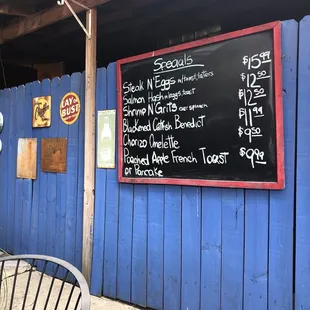 Specials
Steak N' Eggs w/ toast, taters $15.99
Salmon Hash w/eggs, toast $12.50
Shrimp N' Grits $12.50
Blackened Catfish Benedict $11.99
Chorizo Omelette $9.50
Poached Apple French Toast $9.99
or Pancake
LAY or BUST